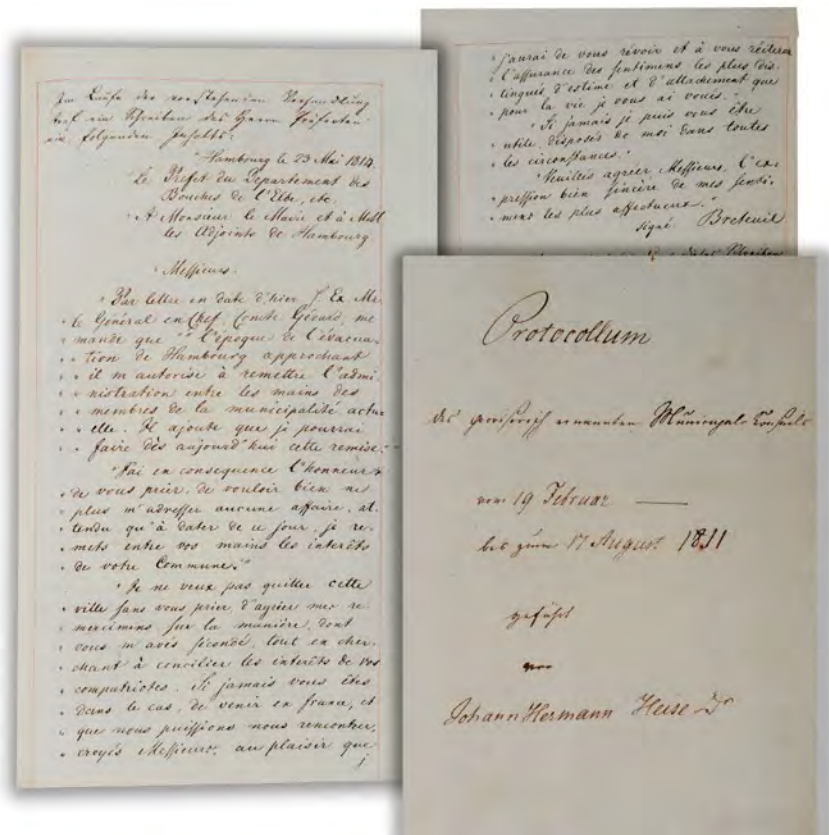 Im Laufe der vorstehenden Verhandlung
traf ein Schreiben des Herrn Präfecten
ein folgenden Inhalts:
"Hambourg le 23 Mai 1814.
"Le Préfet du Département des
Bouches de l'Elbe, etc.
"A Monsieur le Maire et à Mess
les Adjoints de Hambourg.
"Messieurs.
"Par lettre en date d'hier S. Ex. Mr.
"le Général en Chef, Comte Gérard, me
"mande que "l'époque de l'évacua-
" "tion de Hambourg approchant
" "il m'autorise à remettre l'admi-
" "nistration entre les mains des
" "membres de la municipalité actu-
" "elle. Il ajoute que je pourrai
" "faire dès aujourd'hui cette remise."
"J'ai en conséquence l'honneur
"de vous prier, de vouloir bien ne
"plus m'adresser aucune affaire, at-
"tendu qu'à dater de ce jour, je re-
"mets entre vos mains les interêts
"de votre Commune."
"Je ne veux pas quitter cette
"ville sans vous prier, d'agréer mes re-
"mercimens sur la manière, dont
"vous m'avés sécondé, tout en cher-
"chant à concilier les interêts de vos
"compatriotes. Si jamais vous êtes
"dans le cas, de venir en france, et
"que nous puissions nous rencontrer,
"croyés Messieurs, au plaisir que
j
"j'aurai de vous révoir et à vous réiterer
"l'assurance des sentimens les plus dis-
"tingués d'estime et d'attachement que
"pour la vie je vous ai voués."
"Si jamais je puis vous être
"utile, disposés de moi dans toutes
"les circonstances."
"Veuillés agréer, Messieurs, l'ex-
"pression bien sincère de mes senti-
"mens les plus affectueux."
signé. Breteuil
Schreiben
Protocollum
des provisorisch ernannten Municipal-Conseils
vom 19 Februar —
bis zum 17 August 1811
geführt
von
Johann Hermann Heise Dr